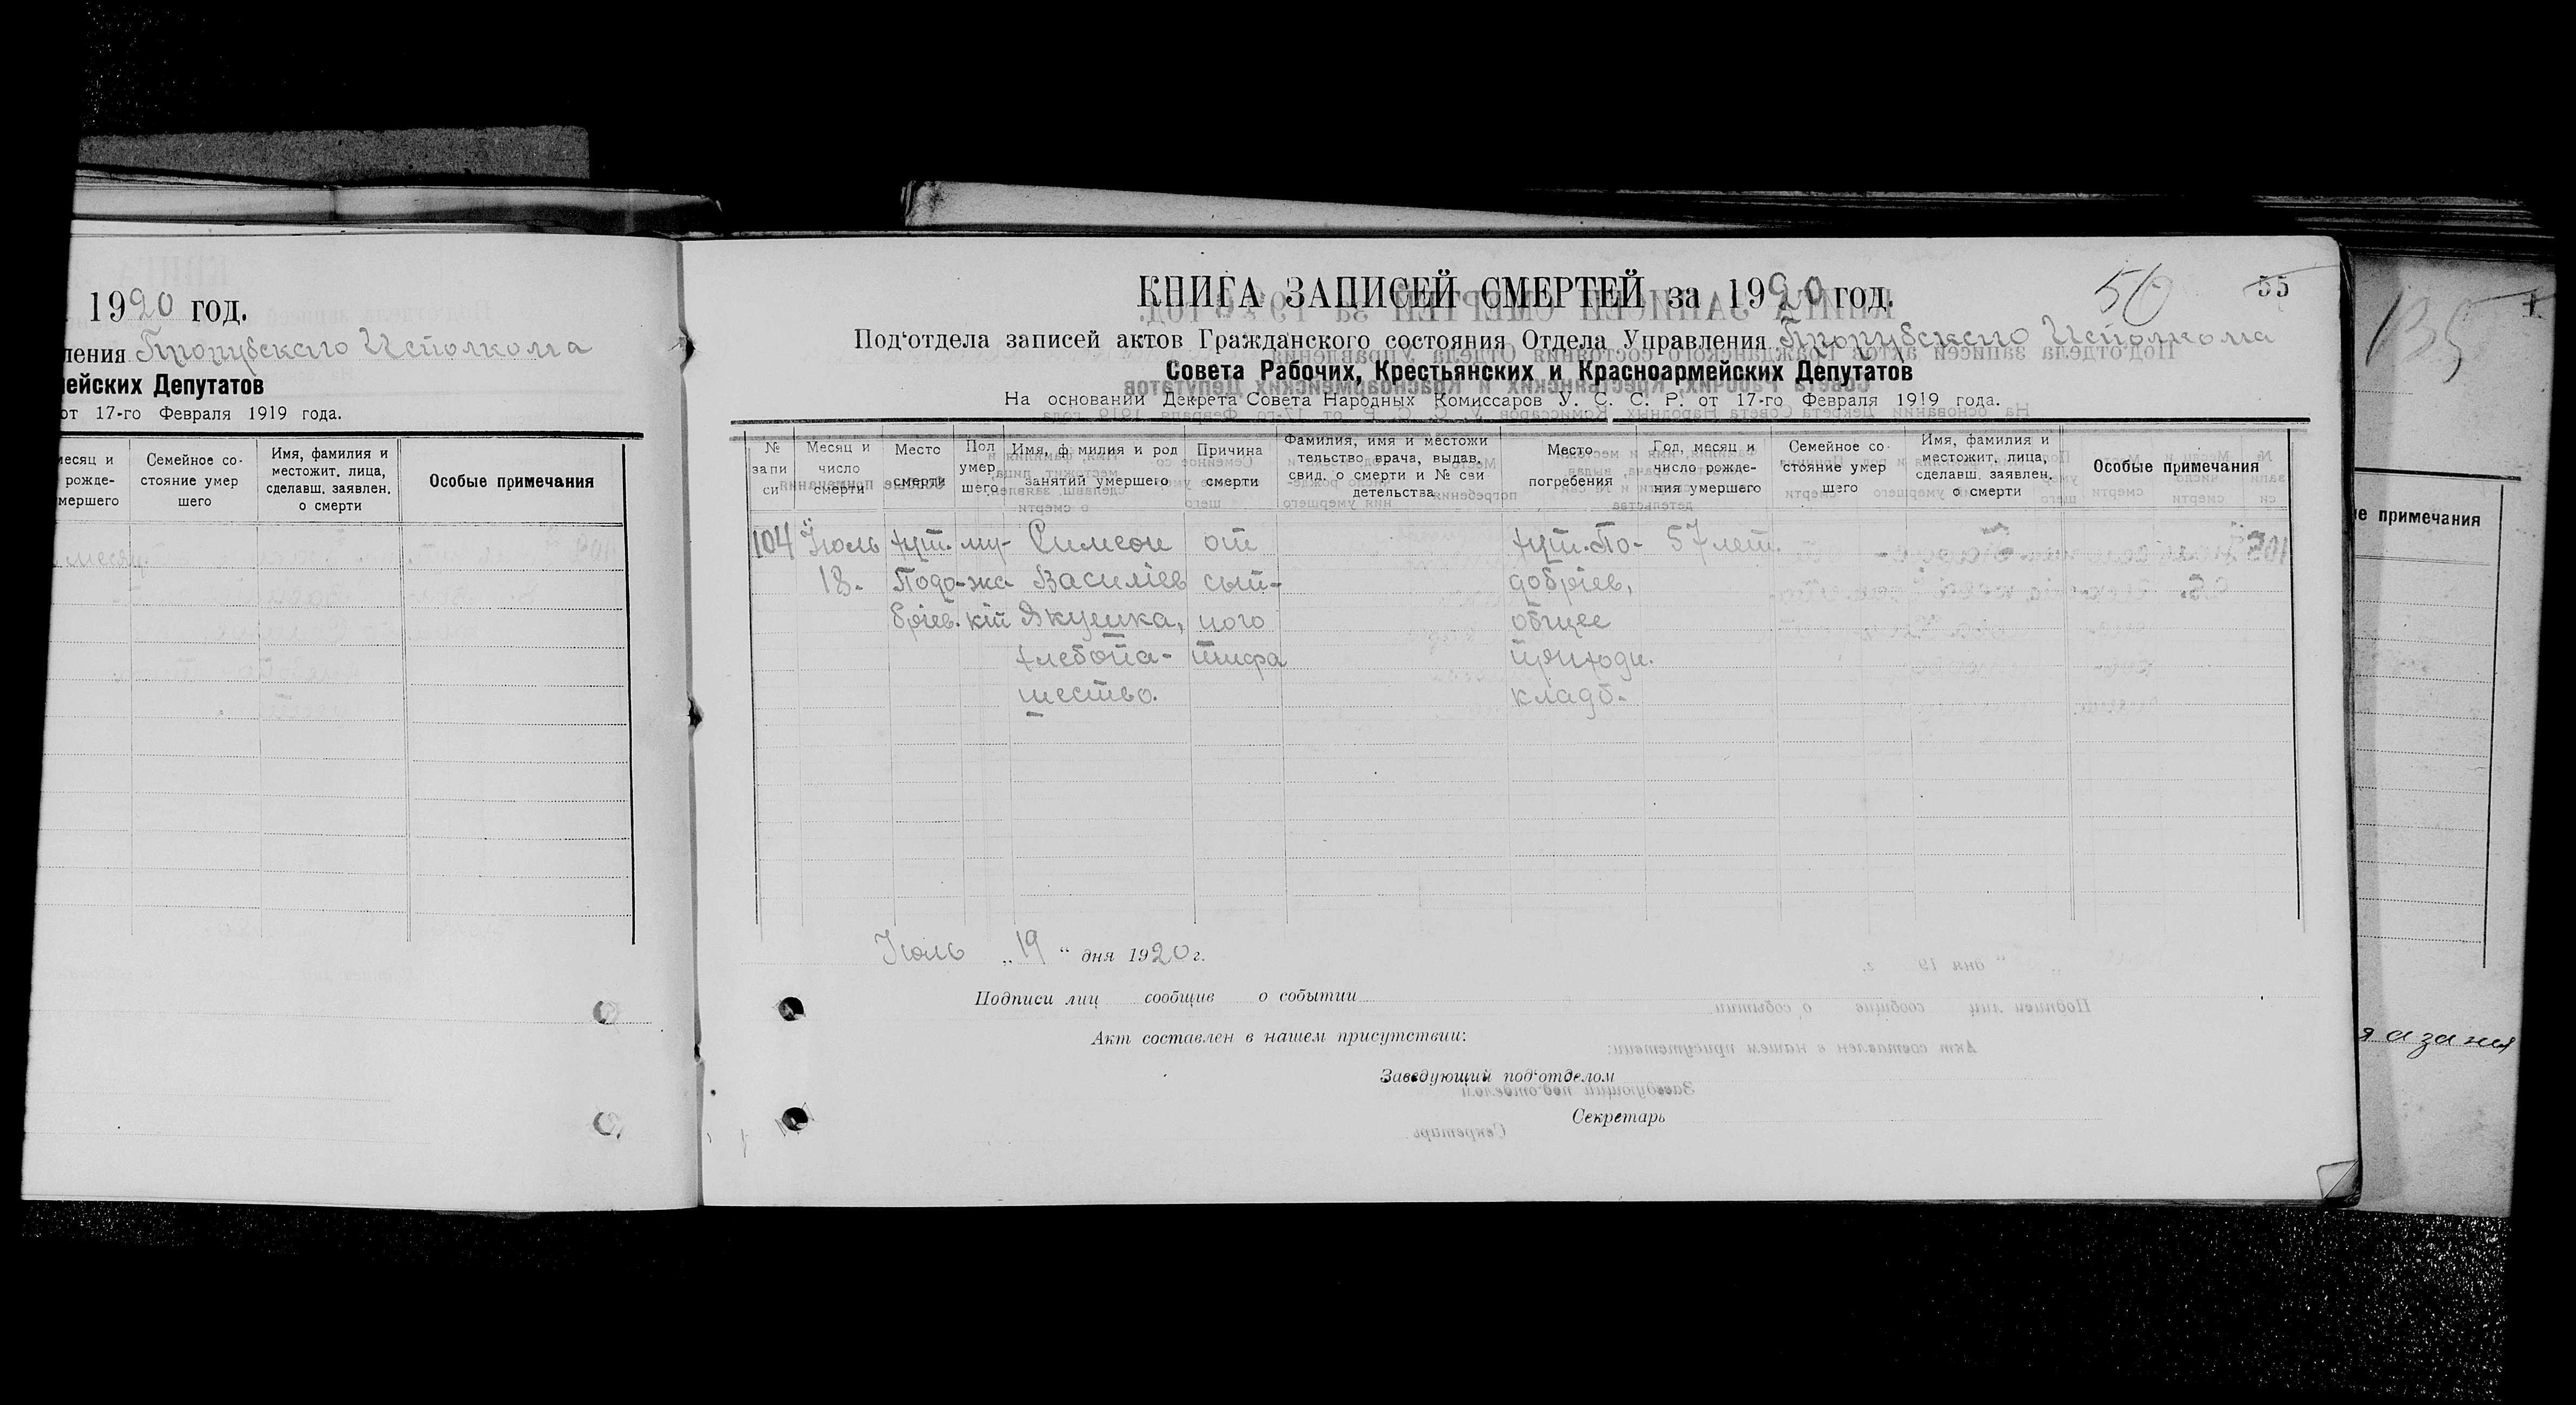 1920 год.
ления Прорубского Исполкома
мейских Депутатов
от 17-го Февраля 1919 года.
месяц и
рожде-
мершего
Семейное со-
стояние умер
шего
Имя, фамилия и
местожит. лица,
сделавш. заявлен.
о смерти
Особые примечания
КНИГА ЗАПИСЕЙ СМЕРТЕЙ за 1920 год.
50
55
Под‘отдела записей актов Гражданского состояния Отдела Управления Прорубского Исполкома
Совета Рабочих, Крестьянских и Красноармейских Депутатов
На основании Декрета Совета Народных Комиссаров У. С. С. Р. от 17-го Февраля 1919 года.
№
запи
си
Месяц и
число
смерти
Место
смерти
Пол
умер
шего
Имя, ф милия и род
занятий умершего
Причина
смерти
Фамилия, имя и местожи
тельство врача, выдав.
свид. о смерти и № сви
детельства
Место
погребения
Год, месяц и
число рожде-
ния умершего
Семейное со-
стояние умер
шего
Имя, фамилия и
местожит. лица,
сделавш. заявлен.
о смерти
Особые примечания
104
Июль
18.
хут.
Подо-
бріев.
му-
жс
кій
Симеон
Василіев
Якушка,
хлебопа-
шество.
от
сып-
ного
тифа
хут. По-
добріев,
общее
приходи.
кладб.
57 лет.
Июль „19“ дня 1920 г.
Подписи лиц сообщив о событии
Акт составлен в нашем присутствии:
Заведующий под‘отделом
Секретарь
135
ые примечания